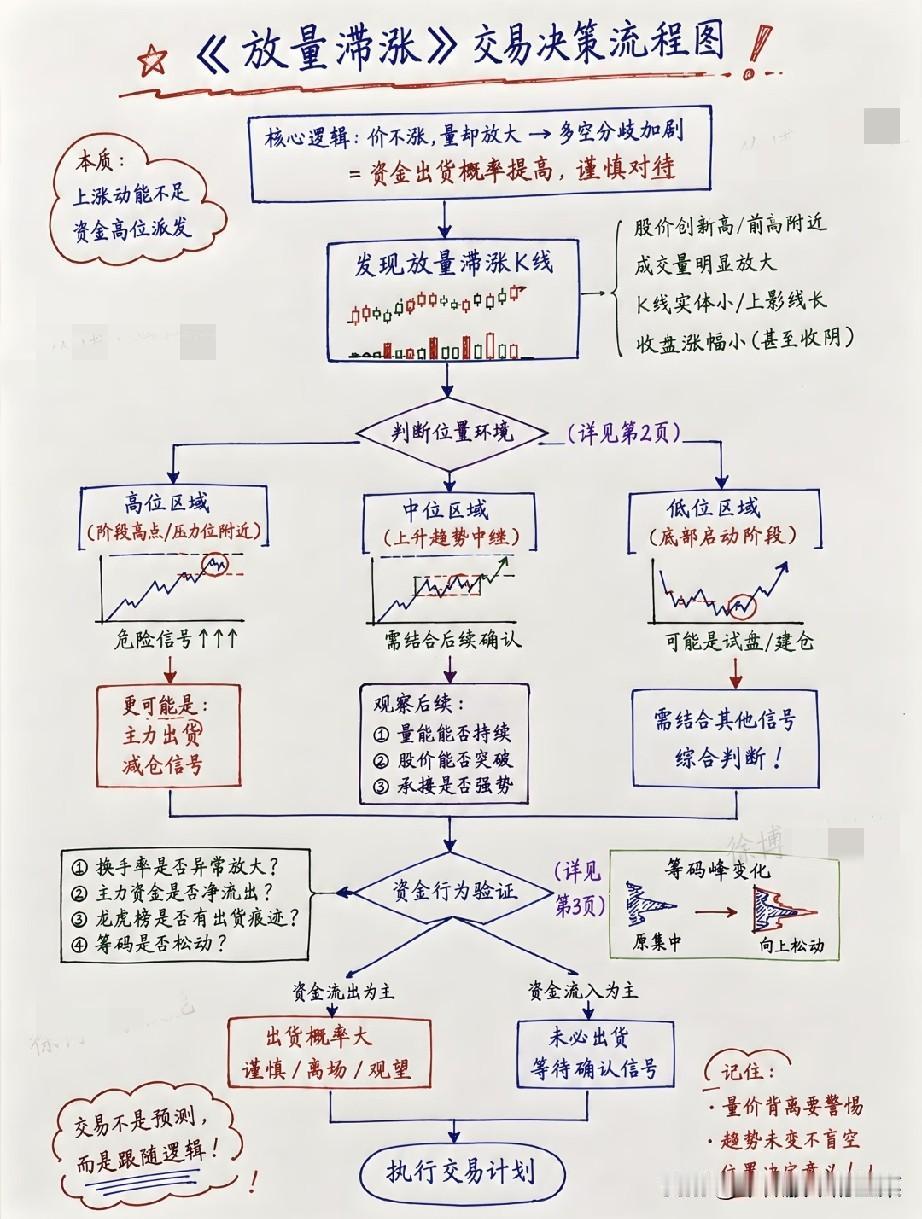 《放量滞涨》交易决策流程图!
核心逻辑：价不涨,量却放大→多空分歧加剧
=资金出货概率提高，谨慎对待
本质：
上涨动能不足
资金高位派发
发现放量滞涨K线
股价创新高/前高附近
成交量明显放大
K线实体小/上影线长
收盘涨幅小(甚至收阴)
判断位置环境
(详见第2页)
高位区域
(阶段高点/压力位附近)
危险信号↑↑↑
更可能是：
主力出货
减仓信号
中位区域
(上升趋势中继)
需结合后续确认
观察后续：
① 量能能否持续
② 股价能否突破
③ 承接是否强势
低位区域
(底部启动阶段)
可能是试盘/建仓
需结合其他信号
综合判断！
① 换手率是否异常放大？
② 主力资金是否净流出？
③ 龙虎榜是否有出货痕迹？
④ 筹码是否松动？
资金行为验证
(详见
第3页)
徐博
筹码峰变化
原集中
向上松动
资金流出为主
资金流入为主
出货概率大
谨慎/离场/观望
未必出货
等待确认信号
执行交易计划
交易不是预测，
而是跟随逻辑！
!
记住：
·量价背离要警惕
·趋势未变不盲空
位置决定意义！！